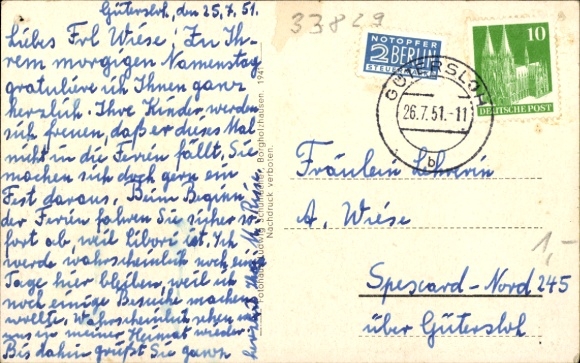 Gütersloh, den 25.7.51.
Liebes Frl Wiese! Zu Ih-
rem morgigen Namenstag
gratuliere ich Ihnen ganz
herzlich. Ihre Kinder werden
sich freuen, daß er dieses Mal
nicht in die Ferien fällt. Sie
machen sich doch gern ein
Fest daraus. Beim Beginn
der Ferien fahren Sie sicher so-
fort ab, weil Libori ist. Ich
werde wahrscheinlich noch ein
Tage hier bleiben, weil ich
noch einige Besuche machen
wollte. Wahrscheinlich sehen wir
uns in meiner Heimat wieder.
Bis dahin grüßt Sie ganz
herzlich Ihre M.
Fotohaus Ludwig Borgholzhausen. 194
Nachdruck verboten.
33829
NOTOPFER
2 BERLIN
STEUERMARKE
10
DEUTSCHE POST
GÜTERSLOH
26.7.51.-11
b
Fräulein Lehrerin
A. Wiese
1,-
Spexard-Nord 245
über Gütersloh